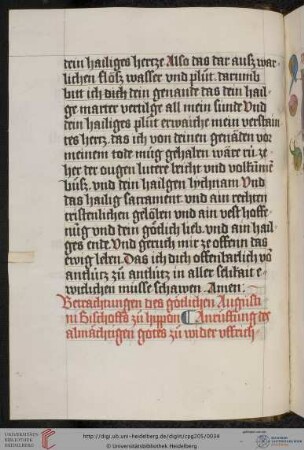 dein hailiges hertze Also das dar ausz war
lichen flosz wasser vnd plůt. darumb
bitt ich dich dein genande das dein hail
ge marter vertilge all mein sunde Vnd
dein hailiges plůt erwaiche mein verstain
tes hertz. das ich von deinen genaden vor
meinem tode mug gehaben ware
her der ougen lutere bicht vnd volkumne
bůsz. vnd dein hailgen lychnam Vnd
das hailig sacrament vnd ain rechten
cristenlichen gelöben vnd ain vest hoffe
nüg vnd dein götlich lieb. vnd ain hail
ges ende Vnd geruch mir ze offenn das
ewig leben. Das ich dich offenbarlich vō
antlütz zu antlütz in aller selikait e
wicklichen müsse schawen. Amen.
Betrachtungen des götlichen Augusti
ni Bischoffs zů hippon Anrüffung des
almächtigen gottes zů wider vffrich
http://digi.ub.uni-heidelberg.de/diglit/cpg205/0034
© Universitätsbibliothek Heidelberg
UNIVERSITÄTS-
BIBLIOTHEK
HEIDELBERG